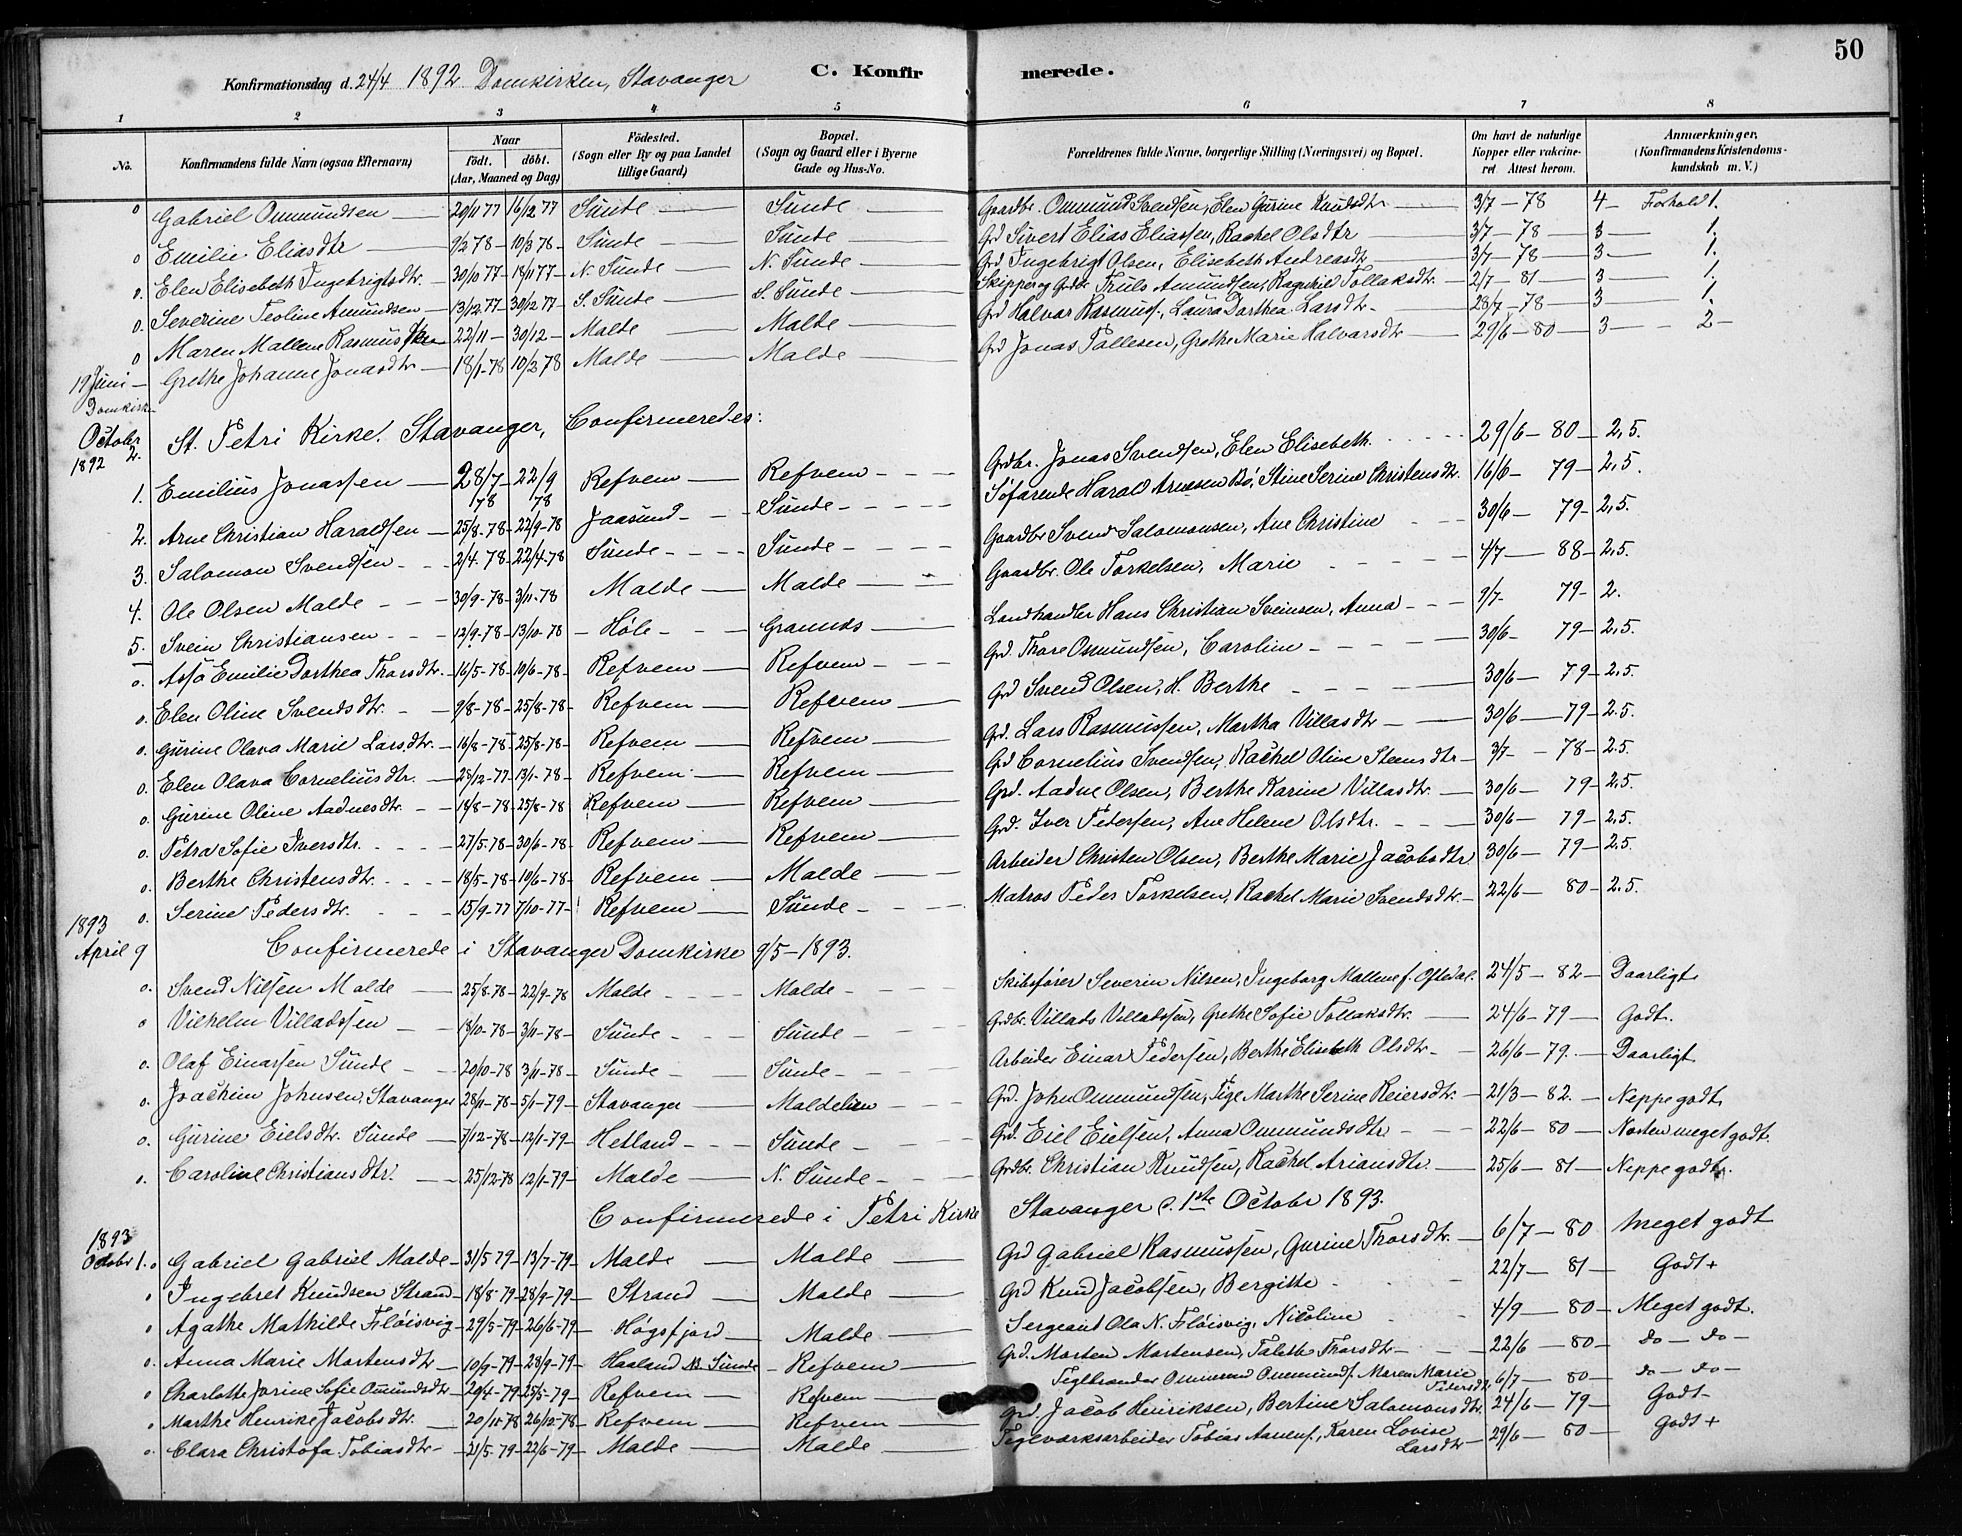 50
Konfirmationsdag d. 24/4 1892 Domkirken, Stavanger C. Konfirmerede.
1 2 3 4 5 6 7 8
No. Konfirmandens fulde Navn (ogsaa Efternavn) Naar födt. döbt. (Aar, Maaned og Dag) Födested. (Sogn eller By og paa Landet tillige Gaard) Bopæl. (Sogn og Gaard eller i Byerne Gade og Hus-No. Forældrenes fulde Navne, borgerlige Stilling (Næringsvei) og Bopæl. Om havt de naturlige Kopper eller vakcineret Attest herom. Anmærkninger, (Konfirmandens Kristendomskundskab m. V.)
o Gabriel Ommundsen 20/11 77 16/12 77 Sunde Sunde Gaardbr. Ommund Svendsen, Elen Gurine Knudsdtr 3/7 - 78 4 - Forhold 1.
o Emilie Eliasdtr 9/2 78 - 10/3 78 - Sunde Sunde Grd Sivert Elias Eliassen, Rachel Olsdtr 3/7 - 78 - 3 1.
o. Elen Elisebeth Ingebrigtsdtr. 30/10 77 - 18/11 77 - N. Sunde N. Sunde Grd Ingebrigt Olsen, Elisebeth Andreasdtr 3/7 - 78 - 3 - 1.
o. Severine Teoline Amundsen 13/12 77 30/12 77 S. Sunde S. Sunde Skipper og Grdbr Truls Amundsen, Ragnhild Tollaksdtr. 2/7 - 81 3 1.
o Maren Mallene Rasmus 22/11 - 30/12 - Malde Malde Grd Halvar Rasmuss., Laura Dorthea Larsdtr 28/7 - 78 3 1.
19 Juni Domkirk Grethe Johanne Jonasdtr 18/1-78 10/2 78 Malde Malde Grd Jonas Tallesen, Grethe Marie Halvarsdtr 29/6 - 80 - 3 - 2 -
October 2. 1892 St. Petri Kirke. Stavanger, Confirmeredes:
1. Emilius Jonassen 28/7 78 22/9 78 Refvem Refvem Grdbr. Jonas Svendsen, Elen Elisebeth 29/6 - 80 - 2,5.
2. Arne Christian Haraldsen 25/8-78 - 22/9-78 Jaasund Sunde Söfarende Harald Arnesen Bö, Stine Serine Christensdtr. 16/6 - 79 - 2,5.
3. Salomon Svendsen 2/4-78 - 22/4-78 Sunde Sunde Gaardbr Svend Salomonsen, Ane Christine 30/6 - 79 - 2,5.
4. Ole Olsen Malde 30/9-78 - 3/11-78 Malde Malde Gaardbr. Ole Torkelsen, Marie 4/7 - 88 - 2,5.
5. Svein Christiansen 12/9-78 - 13/10-78 Høle Grannes Landhandler Hans Christian Sveinsen, Anna 9/7- 79 - 2.
o. Assa Emilie Dorthea Thorsdtr. 16/5-78 - 10/6-78 - Refvem Refvem Grd. Thore Osmundsen, Caroline 30/6- 79 - 2,5.
o. Elen Oline Svendsdtr. 9/8-78 - 25/8-78 - Refvem Refvem Grd Svend Olsen, H. Berthe 30/6 - 79 - 2,5.
o. Gurine Olava Marie Larsdtr. 16/8-78 - 25/8-78 - Refvem Refvem Grd. Lars Rasmussen, Martha Villasdtr 30/6 - 79 - 2.5.
o. Elen Olava Corneliusdtr. 28/12-77 - 13/1-78 Refvem Refvem Grd Cornelius Svendsen, Rachel Oline Stensdtr 3/7- - 78 - 2.5.
o. Gurine Oline Aadnesdtr. 18/8-78 25/8-78 Refvem Refvem Grd. Aadne Olsen, Berthe Karine Villasdtr. 30/6 - 79 - 2,5.
o. Petra Sofie Iversdtr. 27/5-78 - 30/6-78 - Refvem Refvem Grd. Iver Pedersen, Ane Helene Olsdtr. 30/6 - 79 - 2,5.
o. Berthe Christensdtr. 18/5-78 - 10/6-78 - Refvem Malde Arbeider Christen Olsen, Berthe Marie Jacobsdtr 30/6 - 79 - 2.5.
o. Serine Pedersdtr. 15/9-77 7/10-77 - Refvem Sunde Matros Peder Torkelsen, Rachel Marie Svendsdtr. 22/6 - 80 - 2.5.
1893 April 9 Confirmerede i Stavanger Domkirke 9/5 - 1893.
o. Svend Nilsen Malde 25/8-78 - 22/9-78 Malde Malde Skibsfører Severin Nilsen, Ingeborg Mallene f. Oftedal. 24/5 - 82 - Daarligt
o Vilhelm Villadssen 18/10-78 - 3/11-78 - Sunde Sunde Grdbr. Villads Villadssen, Grethe Sofie Tollaksdtr. 24/6 - 79 - Godt.
o. Olaf Einarsen Sunde 20/10-78 3/11-78 - Sunde Sunde Arbeider Einar Pedersen, Berthe Elisebeth Olsdtr. 26/6 - 79. Daarligt
o. Joachim Johnsen, Stavanger 28/11-78 - 5/1-79 - Stavanger Maldelien Grd. John Ommundsen, Pige Marthe Serine Reiersdtr. 21/3 - 82. - Neppe godt
o. Gurine Eielsdtr. Sunde 7/12-78 - 12/1-79 - Hetland Sunde Grd. Eiel Eielsen, Anna Ommundsdtr 22/6 - 80 - Næsten meget godt.
o. Caroline Christiansdtr. 25/12-78 12/1-79 - Malde N. Sunde Grdbr. Christian Knudsen, Rachel Ariansdtr. 25/6 - 81 - Neppe godt.
Confirmerede i Petri Kirke Stavanger d. 1ste October 1893.
1893 October 1. o Gabriel Gabriel Malde 31/5 79 - 13/7-79 - Malde Malde Grd Gabriel Rasmussen, Gurine Thorsdtr. 6/7 - 80 Meget godt
o Ingebret Knudsen Strand 18/8-79 - 28/9-79 - Strand Malde Grd Knud Jacobsen, Bergitte 22/7 - 81 Godt +
o Agathe Mathilde Fløisvig 29/5-79 - 26/6-79 Høgsfjord Malde Sergeant Ola N. Fløisvig, Nicoline 4/9 - 80 - Meget godt.
o. Anna Marie Mortensdtr 10/9-79 - 28/9-79 - Haaland Sunde Refvem Grd. Morten Mortensen, Taleth Thorsdtr 22/6 - 80 - do - do -
o Charlotte Jorine Sofie Omundsdtr 29/4-79 25/5-79 - Refvem Refvem Teglbrænder Ommund Ommunds. Maren Marie Pedersdtr 6/7 - 80 - do - do -
o Marthe Henrike Jacobsdtr. 20/11-78 26/12-78 Refvem Refvem Grd. Jacob Henriksen, Bertine Salomonsdtr. 24/6 - 79 Godt -
o. Clara Christofa Tobiasdtr 21/5-79 - 22/6-79 - Malde Malde Teglværksarbeider Tobias Aanens., Karen Lovise Larsdtr 29/6 - 80 - Godt +